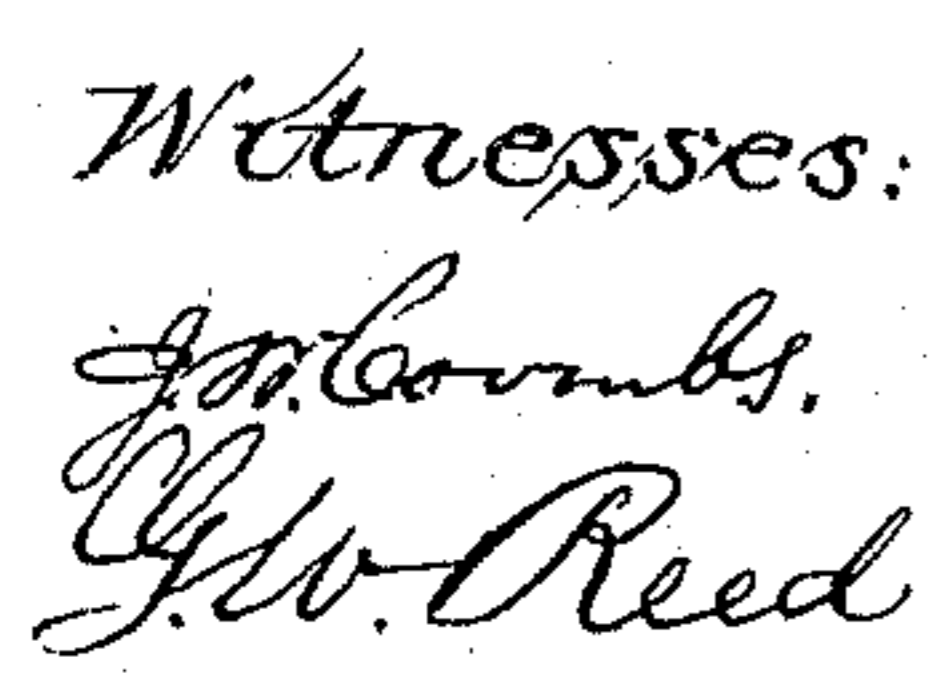 Witnesses:
J. W. Coombs.
G. W. Reed